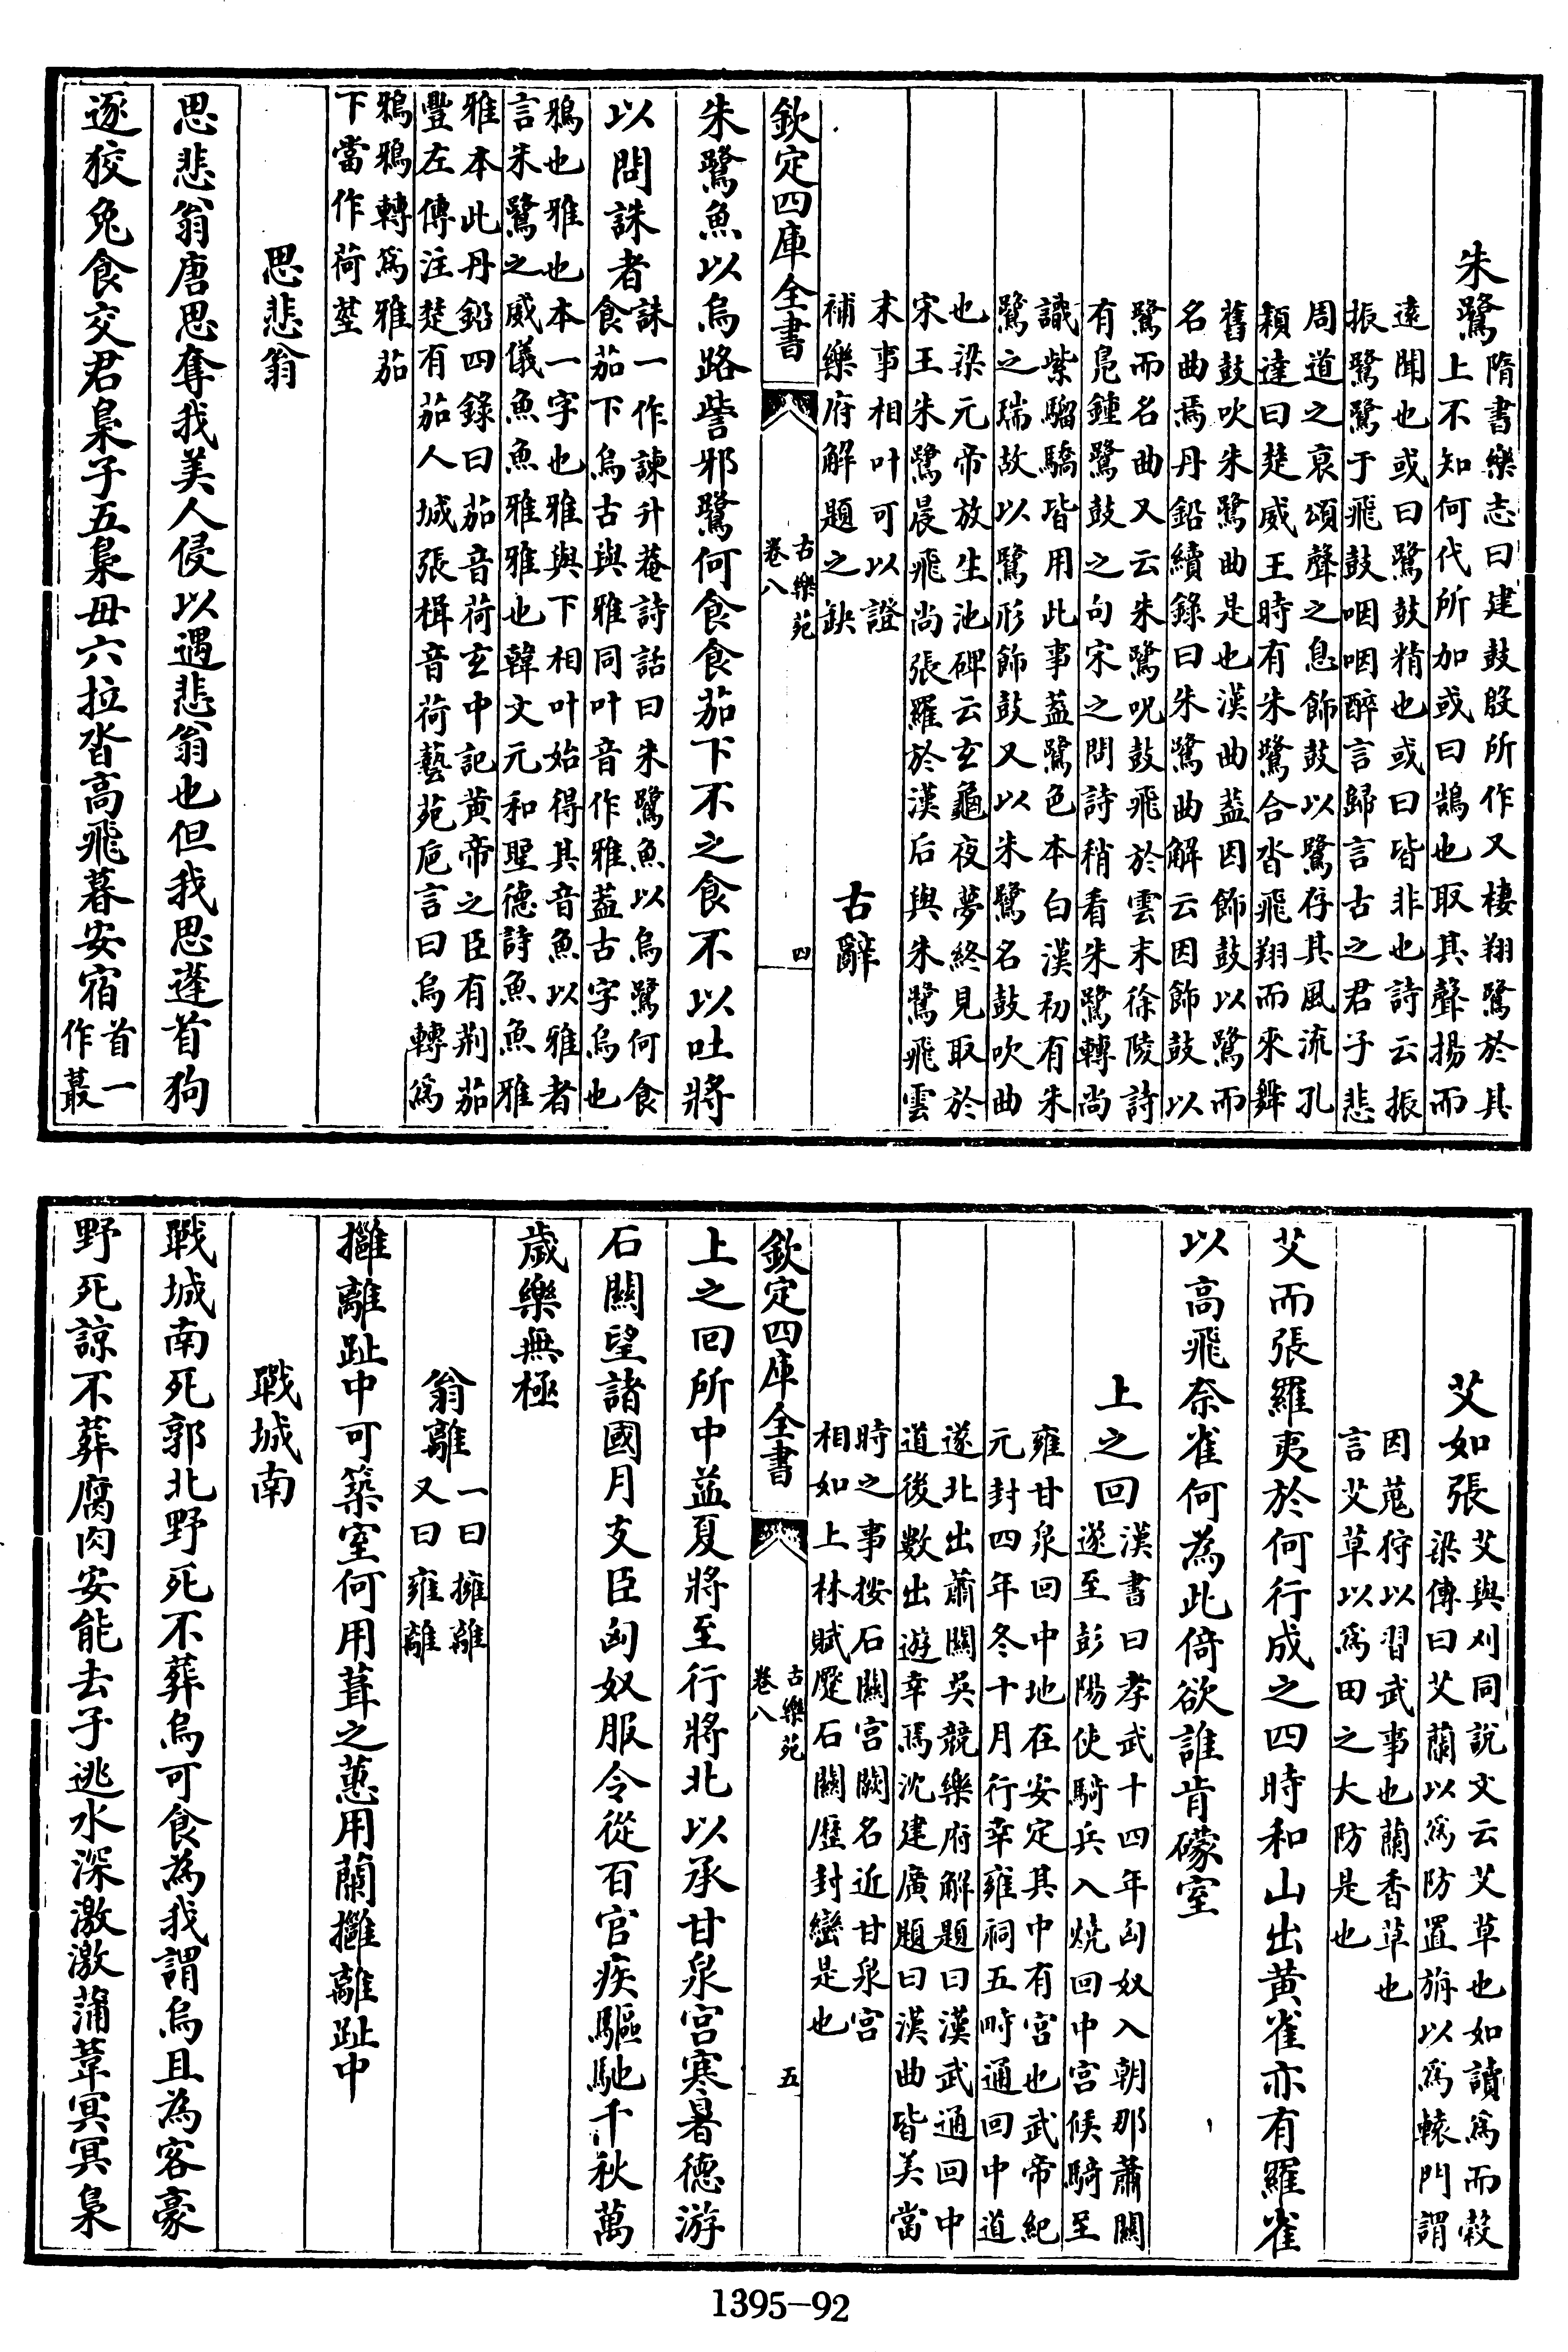 朱鷺隋書樂志曰建鼓殷所作又棲翔鷺於其
上不知何代所加或曰鵠也取其聲揚而
遠聞也或曰鷺鼓精也或曰皆非也詩云振
振鷺鷺于飛鼓咽咽醉言歸言古之君子悲
周道之衰頌聲之息飾鼓以鷺存其風流孔
頴達曰楚威王時有朱鷺合沓飛翔而來舞
舊鼓吹朱鷺曲是也漢曲葢因飾鼓以鷺而
名曲焉丹鉛續錄曰朱鷺曲解云因飾鼓以
鷺而名曲又云朱鷺呪鼓飛於雲末徐陵詩
有鳧鍾鷺鼓之句宋之問詩稍看朱鷺轉尚
識紫騮驕皆用此事葢鷺色本白漢初有朱
鷺之瑞故以鷺形飾鼓又以朱鷺名鼓吹曲
也梁元帝放生池碑云玄龜夜夢終見取於
宋王朱鷺晨飛尚張羅於漢后與朱鷺飛雲
末事相叶可以證
補樂府解題之缺
古辭
欽定四庫全書
古樂苑
卷八
四
朱鷺魚以烏路訾邪鷺何食食茄下不之食不以吐將
以問誅者誅一作諫升菴詩話曰朱鷺魚以烏鷺何食
食茄下烏古與雅同叶音作雅葢古字烏也
鴉也雅也本一字也雅與下相叶始得其音魚以雅者
言朱鷺之威儀魚魚雅雅也韓文元和聖德詩魚魚雅
雅本此丹鉛四錄曰茄音荷玄中記黄帝之臣有荆茄
豐左傳注楚有茄人城張楫音荷藝苑巵言曰烏轉為
鴉鴉轉爲雅茄
下當作荷莖
思悲翁
思悲翁唐思奪我美人侵以遇悲翁也但我思蓬首狗
逐狡兔食交君梟子五梟母六拉沓高飛暮安宿首一
作蕞
艾如張艾與刈同說文云艾草也如讀爲而榖
梁傳曰艾蘭以爲防置旃以爲轅門謂
因蒐狩以習武事也蘭香草也
言艾草以爲田之大防是也
艾而張羅夷於何行成之四時和山出黄雀亦有羅雀
以高飛奈雀何為此倚欲誰肯礞室
上之回漢書曰孝武十四年匈奴入朝那蕭關
遂至彭陽使騎兵入燒回中宫候騎至
雍甘泉回中地在安定其中有宫也武帝紀
元封四年冬十月行幸雍祠五畤通回中道
遂北出蕭關吳競樂府解題曰漢武通回中
道後數出遊幸焉沈建廣題曰漢曲皆美當
時之事按石關宫闕名近甘泉宫
相如上林賦蹷石關歴封巒是也
欽定四庫全書
古樂苑
卷八
五
上之回所中益夏將至行將北以承甘泉宫寒暑德游
石關望諸國月支臣匈奴服令從百官疾驅馳千秋萬
歲樂無極
翁離一曰擁離
又曰雍離
擁離趾中可築室何用葺之蕙用蘭擁離趾中
戰城南
戰城南死郭北野死不葬烏可食為我謂烏且為客豪
野死諒不葬腐肉安能去子逃水深激激蒲葦冥冥梟
1395-92